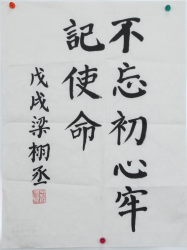 不忘初心牢
記使命
戊戌梁栩丞